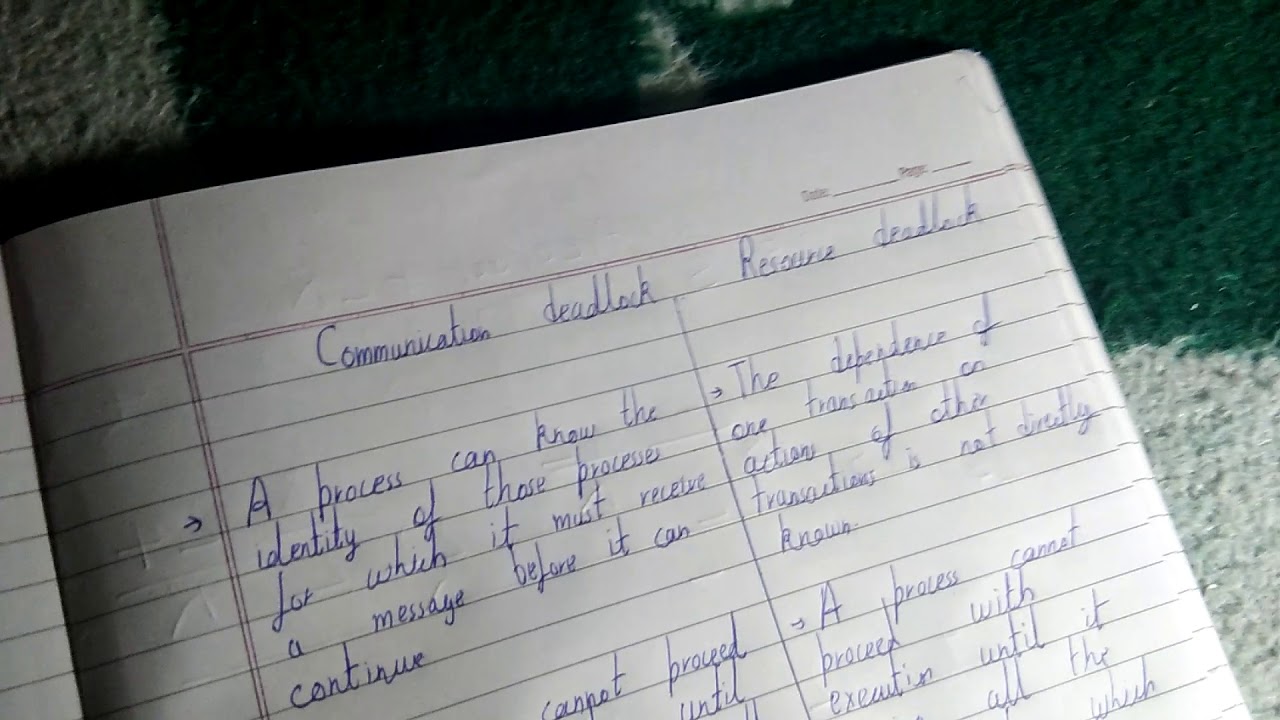 Date: Page:
Communication deadlock
A process can know the
identity of those processes
for which it must receive
a message before it can
continue
cannot proceed
until
Resource deadlock
The dependence of
one transaction on
actions of other
transactions is not directly
known.
→ A process cannot
proceed with
execution until it
all the
which